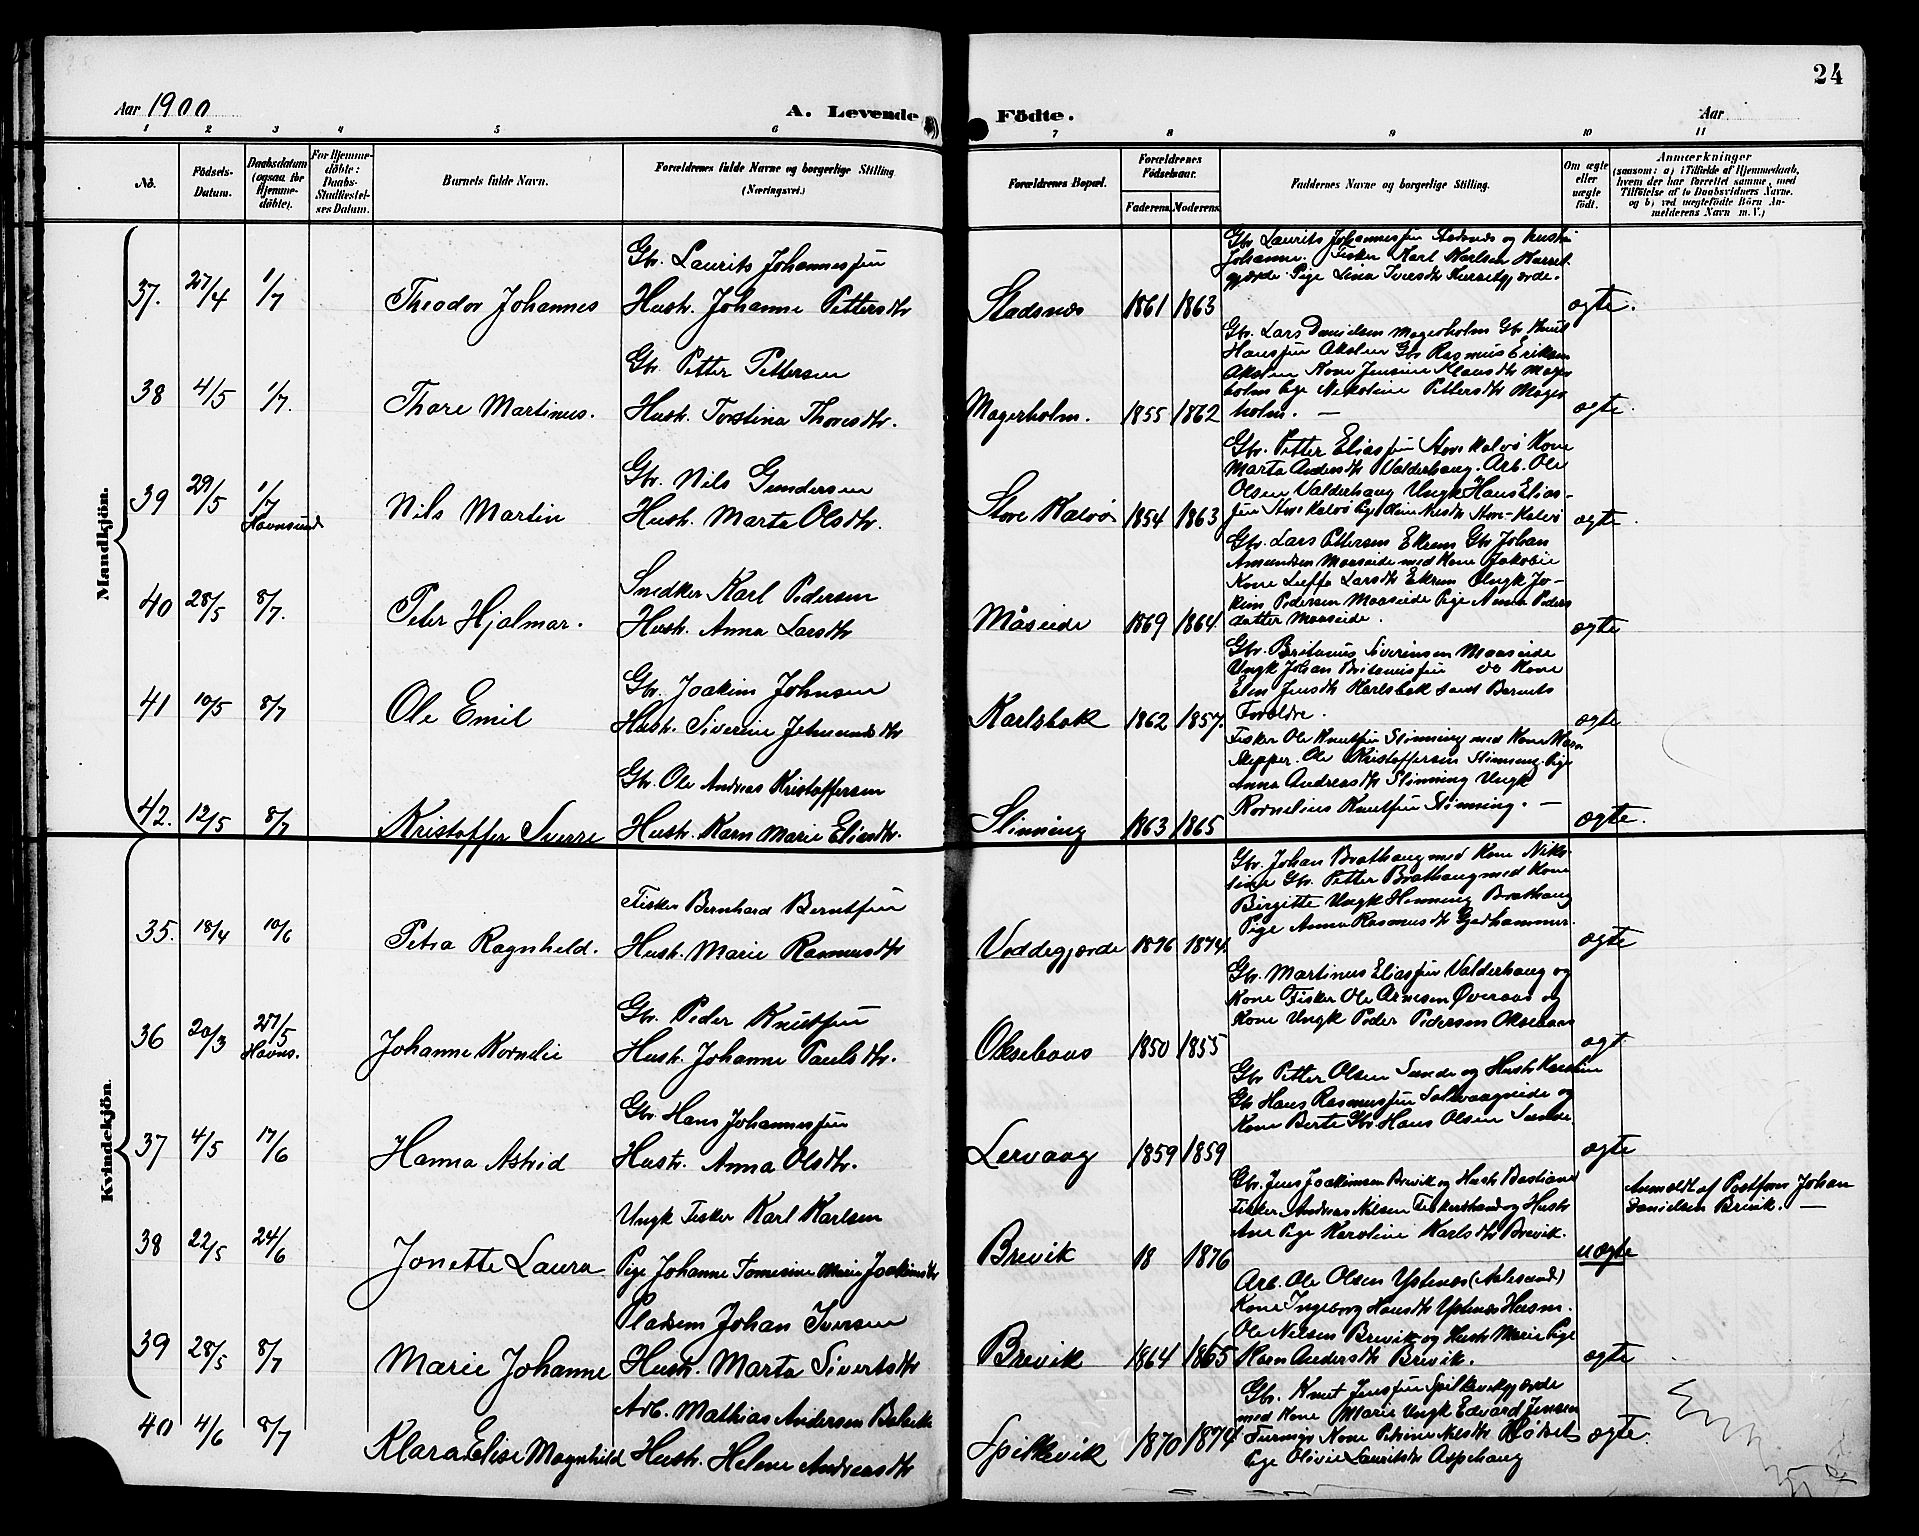 24
Aar 1900
A. Levende
Födte.
Aar
1 2 3 4 5 6 7 8 9 10 11
No.
Födsels-
Datum.
Daabsdatum
(ogsaa for
Hjemme-
döbte).
For Hjemme-
döbte:
Daabs-
Stadfæstel-
ses Datum.
Barnets fulde Navn.
Forældrenes fulde Navne og borgerlige Stilling
(Næringsvei.)
Forældrenes Bopæl.
Forældrenes
Födselsaar.
Faderens. Moderens.
Faddernes Navne og borgerlige Stilling.
Om ægte
eller
uægte
födt.
Anmærkninger
(saasom: a) i Tilfælde af Hjemmedaab,
hvem der har forrettet samme, med
Tilföielse af to Daabsvidners Navne,
og b) ved uægtefödte Börn An-
melderens Navn m. V.)
Mandkjön.
37. 27/4 1/7 Theodor Johannes
Gbr. Laurits Johannesen
Hustr. Johanne Pettersdtr
Stadsnes 1861 1863
Gbr Laurits Johannesen Stadsnes og hustru
Johanne. Fisker Karl Karlsen
Pige Lina
ægte.
38 4/5 1/7. Thore Martinus.
Gbr. Petter Pettersen
Hustr. Torstina Thoresdtr.
Magerholm. 1855 1862
Gbr. Lars Danielsen Magerholm Gbr Knut
Hansen Akslen Gbr Rasmus Eriksen
Akslen Kone Jensine Klausdtr Mager
holm Pige Nikoline Pettersdtr Mager
holm. —
ægte.
39 29/5 1/7 Havnsund Nils Martin
Gbr. Nils Gundersen
Hustr. Marta Olsdtr.
Store Kalvø 1854 1863
Gbr. Petter Eliassen Store Kalvø Kone
Marta Andersdtr Valderhaug. Arb. Ole
Olsen Valderhaug Ungk Hans Elias-
sen Store Kalvø Pige Store-Kalvø
ægte
40 28/5 8/7. Peter Hjalmar.
Snedker Karl Pedersen
Hustr. Anna Larsdtr
Måseide 1869 1864
Gbr. Lars Pettersen Ekrem Gbr Johan
Amundsen Maaseide med Kone Jakobie
Kone Larsdtr Ekrem Ungk Jo-
kim Pedersen Maaseide Pige Anna Peders
datter Maaseide.
ægte
41 10/5 8/7 Ole Emil
Gbr. Joakim Johnsen
Hustr. Siverine Jetmundsdtr
Karlsbak 1862 1857.
Gbr. Britanus Siverinsen Maaseide
Ungk Johan Britanussen do Kone
Elen Jensdtr Karlsbak samt Barnets
Forældre.
ægte
42. 12/5 8/7 Kristoffer Sverre
Gbr. Ole Andreas Kristoffersen
Hustr. Karn Marie Eliasdtr.
Slinning 1863 1865
Fisker Ole Knutsen Slinning med Kone
Skipper. Ole Kristoffersen Slinning. Pige
Anna Andreasdtr Slinning Ungk
Kornelius Knutsen Slinning. —
ægte.
Kvindekjön.
35. 18/4 10/6 Petra Ragnhild.
Fisker Bernhard Berntsen
Hustr. Marie Rasmusdtr
Veddegjærde 1876 1874.
Gbr. Johan Brathaug med Kone Niko-
line Gbr. Petter Brathaug med Kone
Birgitte Ungk Henning Brathaug
Pige Anna Rasmusdtr Gjedhammer.
ægte
36 20/3 27/5 Havns. Johanne Kornelie
Gbr. Peder Knutsen
Hustr. Johanne Paulsdtr.
Oksebaas 1850 1855
Gbr. Martinus Eliassen Valderhaug og
Kone Fisker Ole Arnesen Øveraas og
Kone Ungk Peder Pedersen Oksebaas
ægt
37 4/5 17/6 Hanna Astrid
Gbr. Hans Johannessen
Hustr. Anna Olsdtr.
Lervaag 1859 1859
Gbr Petter Olsen Sunde og Hustr Karoline
Gbr Hans Rasmussen Solevaagseide og
Kone Berte Gbr. Hans Olsen Sunde.
ægte
38 22/5 24/6 Jonette Laura
Ungk Fisker Karl Karlsen
Pige Johanne Tomesine Marie Joakimsdtr
Brevik 18 1876
Gbr. Jens Joakimsen Brevik og Hustr Bastiane
Fisker Andreas Nilsen Fiskerstrand og Hustr
Ane Pige Karoline Karlsdtr Brevik.
uægte
Anmeldt af Postfører Johan
Danielsen Brevik. —
39 28/5 8/7 Marie Johanne
Pladsm Johan Iversen
Hustr. Marta Sivertsdtr
Brevik 1864 1865
Arb. Ole Olsen Ystenæs (Aalesund)
Kone Ingeborg Hansdtr Ystenæs Husm.
Ole Nilsen Brevik og Hustr Marie Pige
Karn Andersdtr Brevik.
ægte
40 4/6 8/7 Klara Elise Magnhild
Arb. Mathias Andersen
Hustr. Helene Andreasdtr
Spilkevik 1870 1874.
Gbr. Knut Jenssen Spilkevikgjærde
med Kone Marie Ungk Edvard Jensen
Kone Petrine Nilsdtr
Pige Olivie Lauritsdtr Aspehaug
ægte.